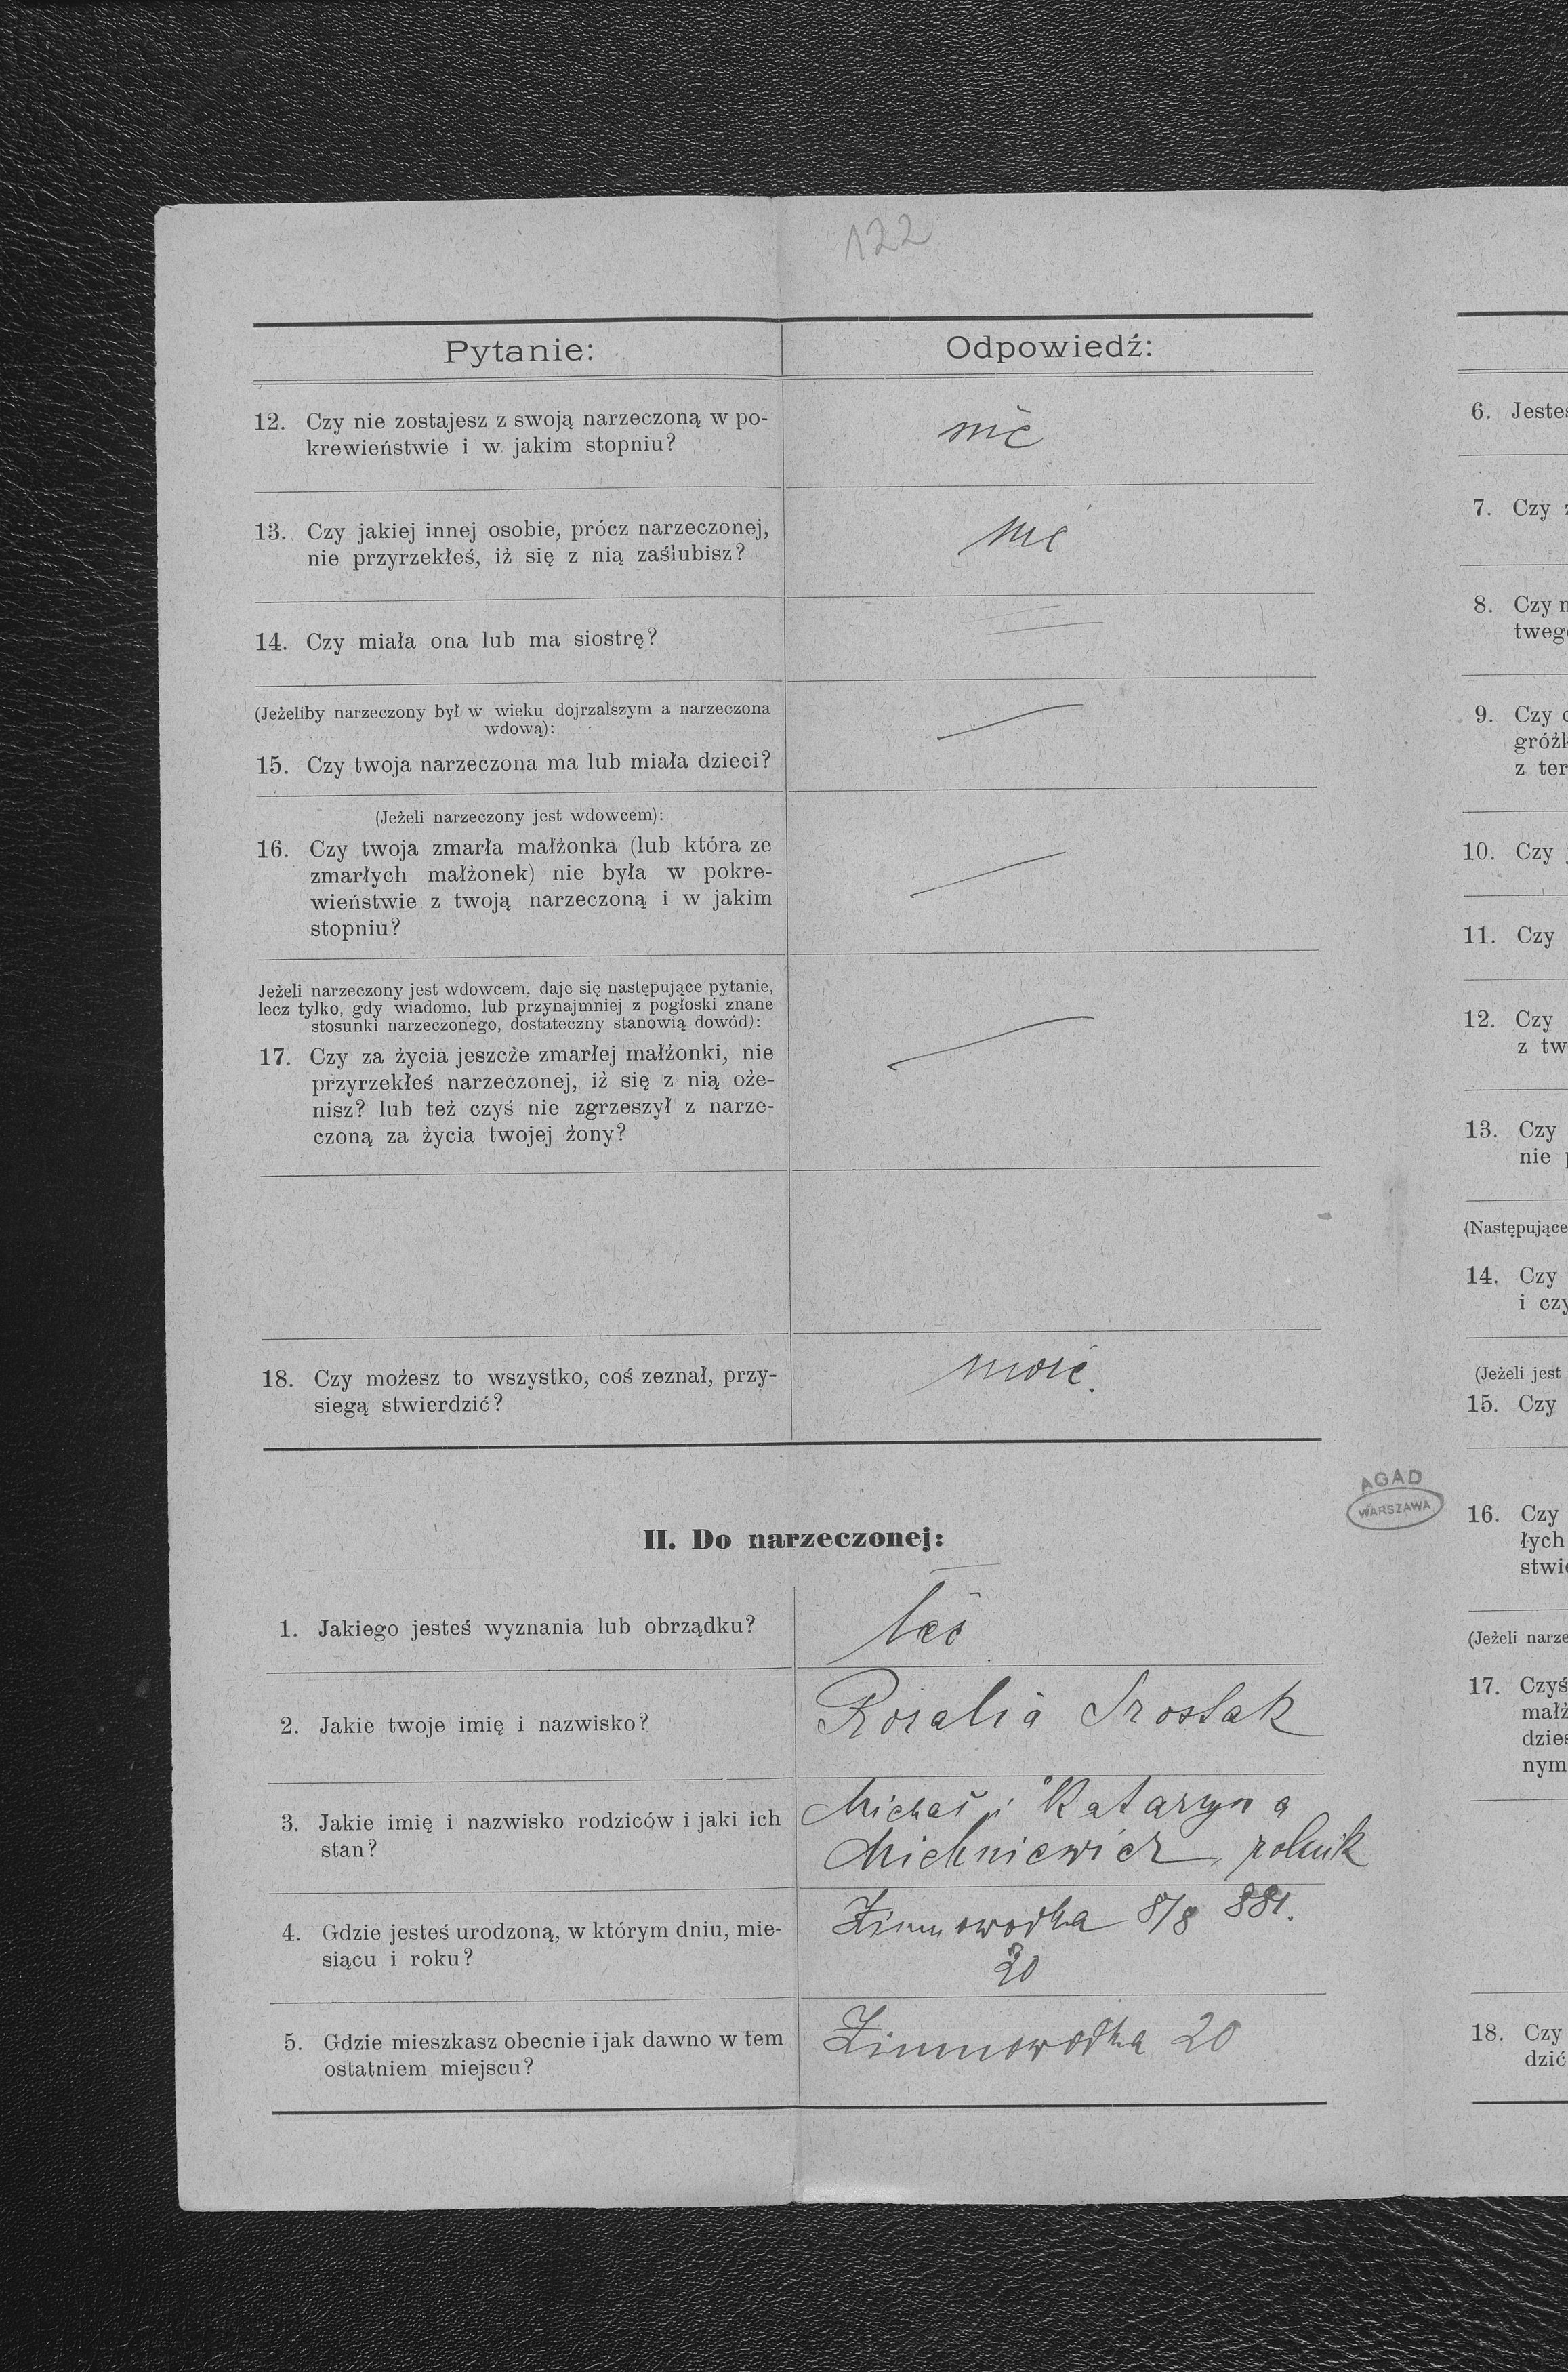 122
Pytanie:
Odpowiedź:
12. Czy nie zostajesz z swoją narzeczoną w po-
krewieństwie i w jakim stopniu?
nie
13. Czy jakiej innej osobie, prócz narzeczonej,
nie przyrzekłeś, iż się z nią zaślubisz?
nie
14. Czy miała ona lub ma siostrę?
(Jeżeliby narzeczony był w wieku dojrzalszym a narzeczona
wdową):
15. Czy twoja narzeczona ma lub miała dzieci?
(Jeżeli narzeczony jest wdowcem):
16. Czy twoja zmarła małżonka (lub która ze
zmarłych małżonek) nie była w pokre-
wieństwie z twoją narzeczoną i w jakim
stopniu?
Jeżeli narzeczony jest wdowcem, daje się następujące pytanie,
lecz tylko, gdy wiadomo, lub przynajmniej z pogłoski znane
stosunki narzeczonego, dostateczny stanowią dowód):
17. Czy za życia jeszcze zmarłej małżonki, nie
przyrzekłeś narzeczonej, iż się z nią oże-
nisz? lub też czyś nie zgrzeszył z narze-
czoną za życia twojej żony?
18. Czy możesz to wszystko, coś zeznał, przy-
siegą stwierdzić?
II. Do narzeczonej:
1. Jakiego jesteś wyznania lub obrządku?
łac
2. Jakie twoje imię i nazwisko?
Rozalia
3. Jakie imię i nazwisko rodziców i jaki ich
stan?
Michał i Katarzyna
Michniewicz, rolnik
4. Gdzie jesteś urodzoną, w którym dniu, mie-
siącu i roku?
Zimnowodka 8/8 881.
20
5. Gdzie mieszkasz obecnie i jak dawno w tem
ostatniem miejscu?
Zimnowodka 20
AGAD
WARSZAWA
6. Jesteś
7. Czy
8. Czy
9. Czy
z
10. Czy
11. Czy
12. Czy
z tw
13. Czy
nie
(Następujące
14. Czy
i
(Jeżeli jest
15. Czy
16. Czy
łych
(Jeżeli
17. Czyś
18. Czy